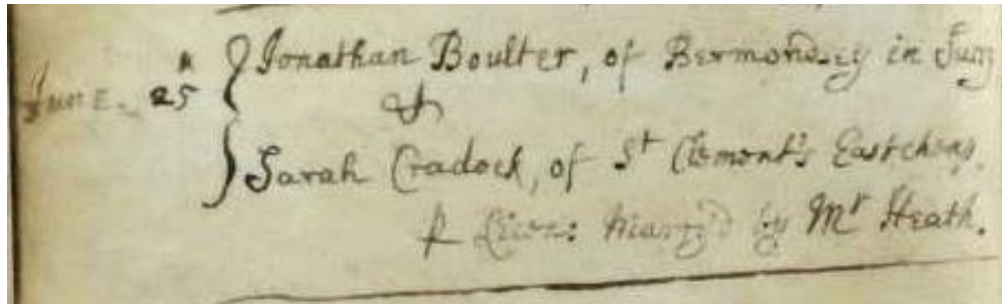 Jonathan Boulter, of Bermondsey in Surry
June. 25
&
Sarah Cradock, of St Clement's Eastcheap.
Licen: Marry'd by Mr Heath.